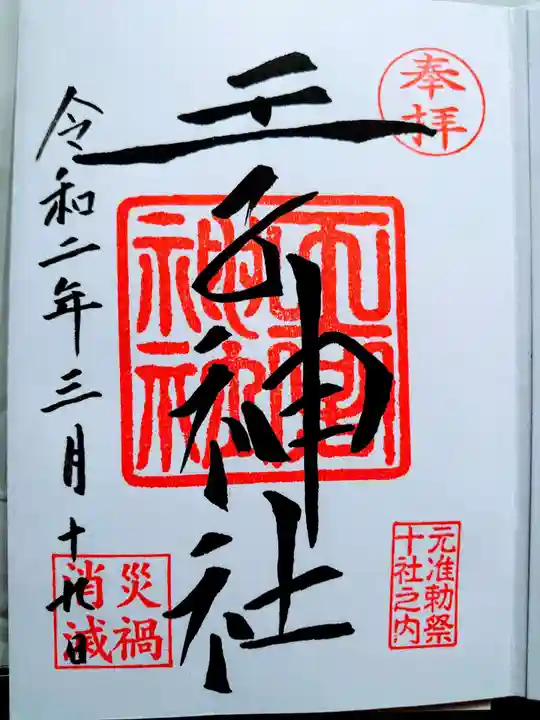 奉拝
王子神社
元准勅祭
十社之内
災禍
消滅
令和二年三月十九日